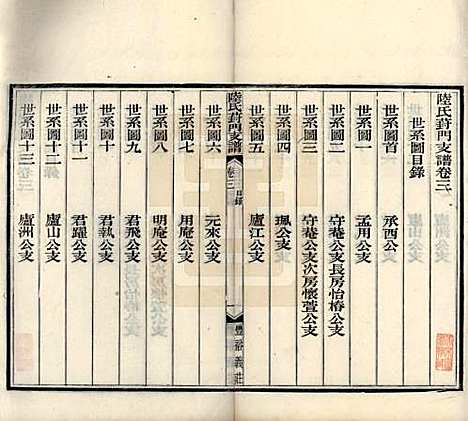 陸氏葑門支譜卷三
世系圖目錄
世系圖首 丞西公支
世系圖一 孟用公支
世系圖二 守菴公支長房怡椿公支
世系圖三 守菴公支次房懷萱公支
世系圖四 珮公支
世系圖五 廬江公支
陸氏葑門支譜 卷三 目錄 一 豐裕義莊
世系圖六 元來公支
世系圖七 用庵公支
世系圖八 明庵公支
世系圖九 君飛公支
世系圖十 君執公支
世系圖十一 君躍公支
世系圖十二 廬山公支
世系圖十三 廬洲公支